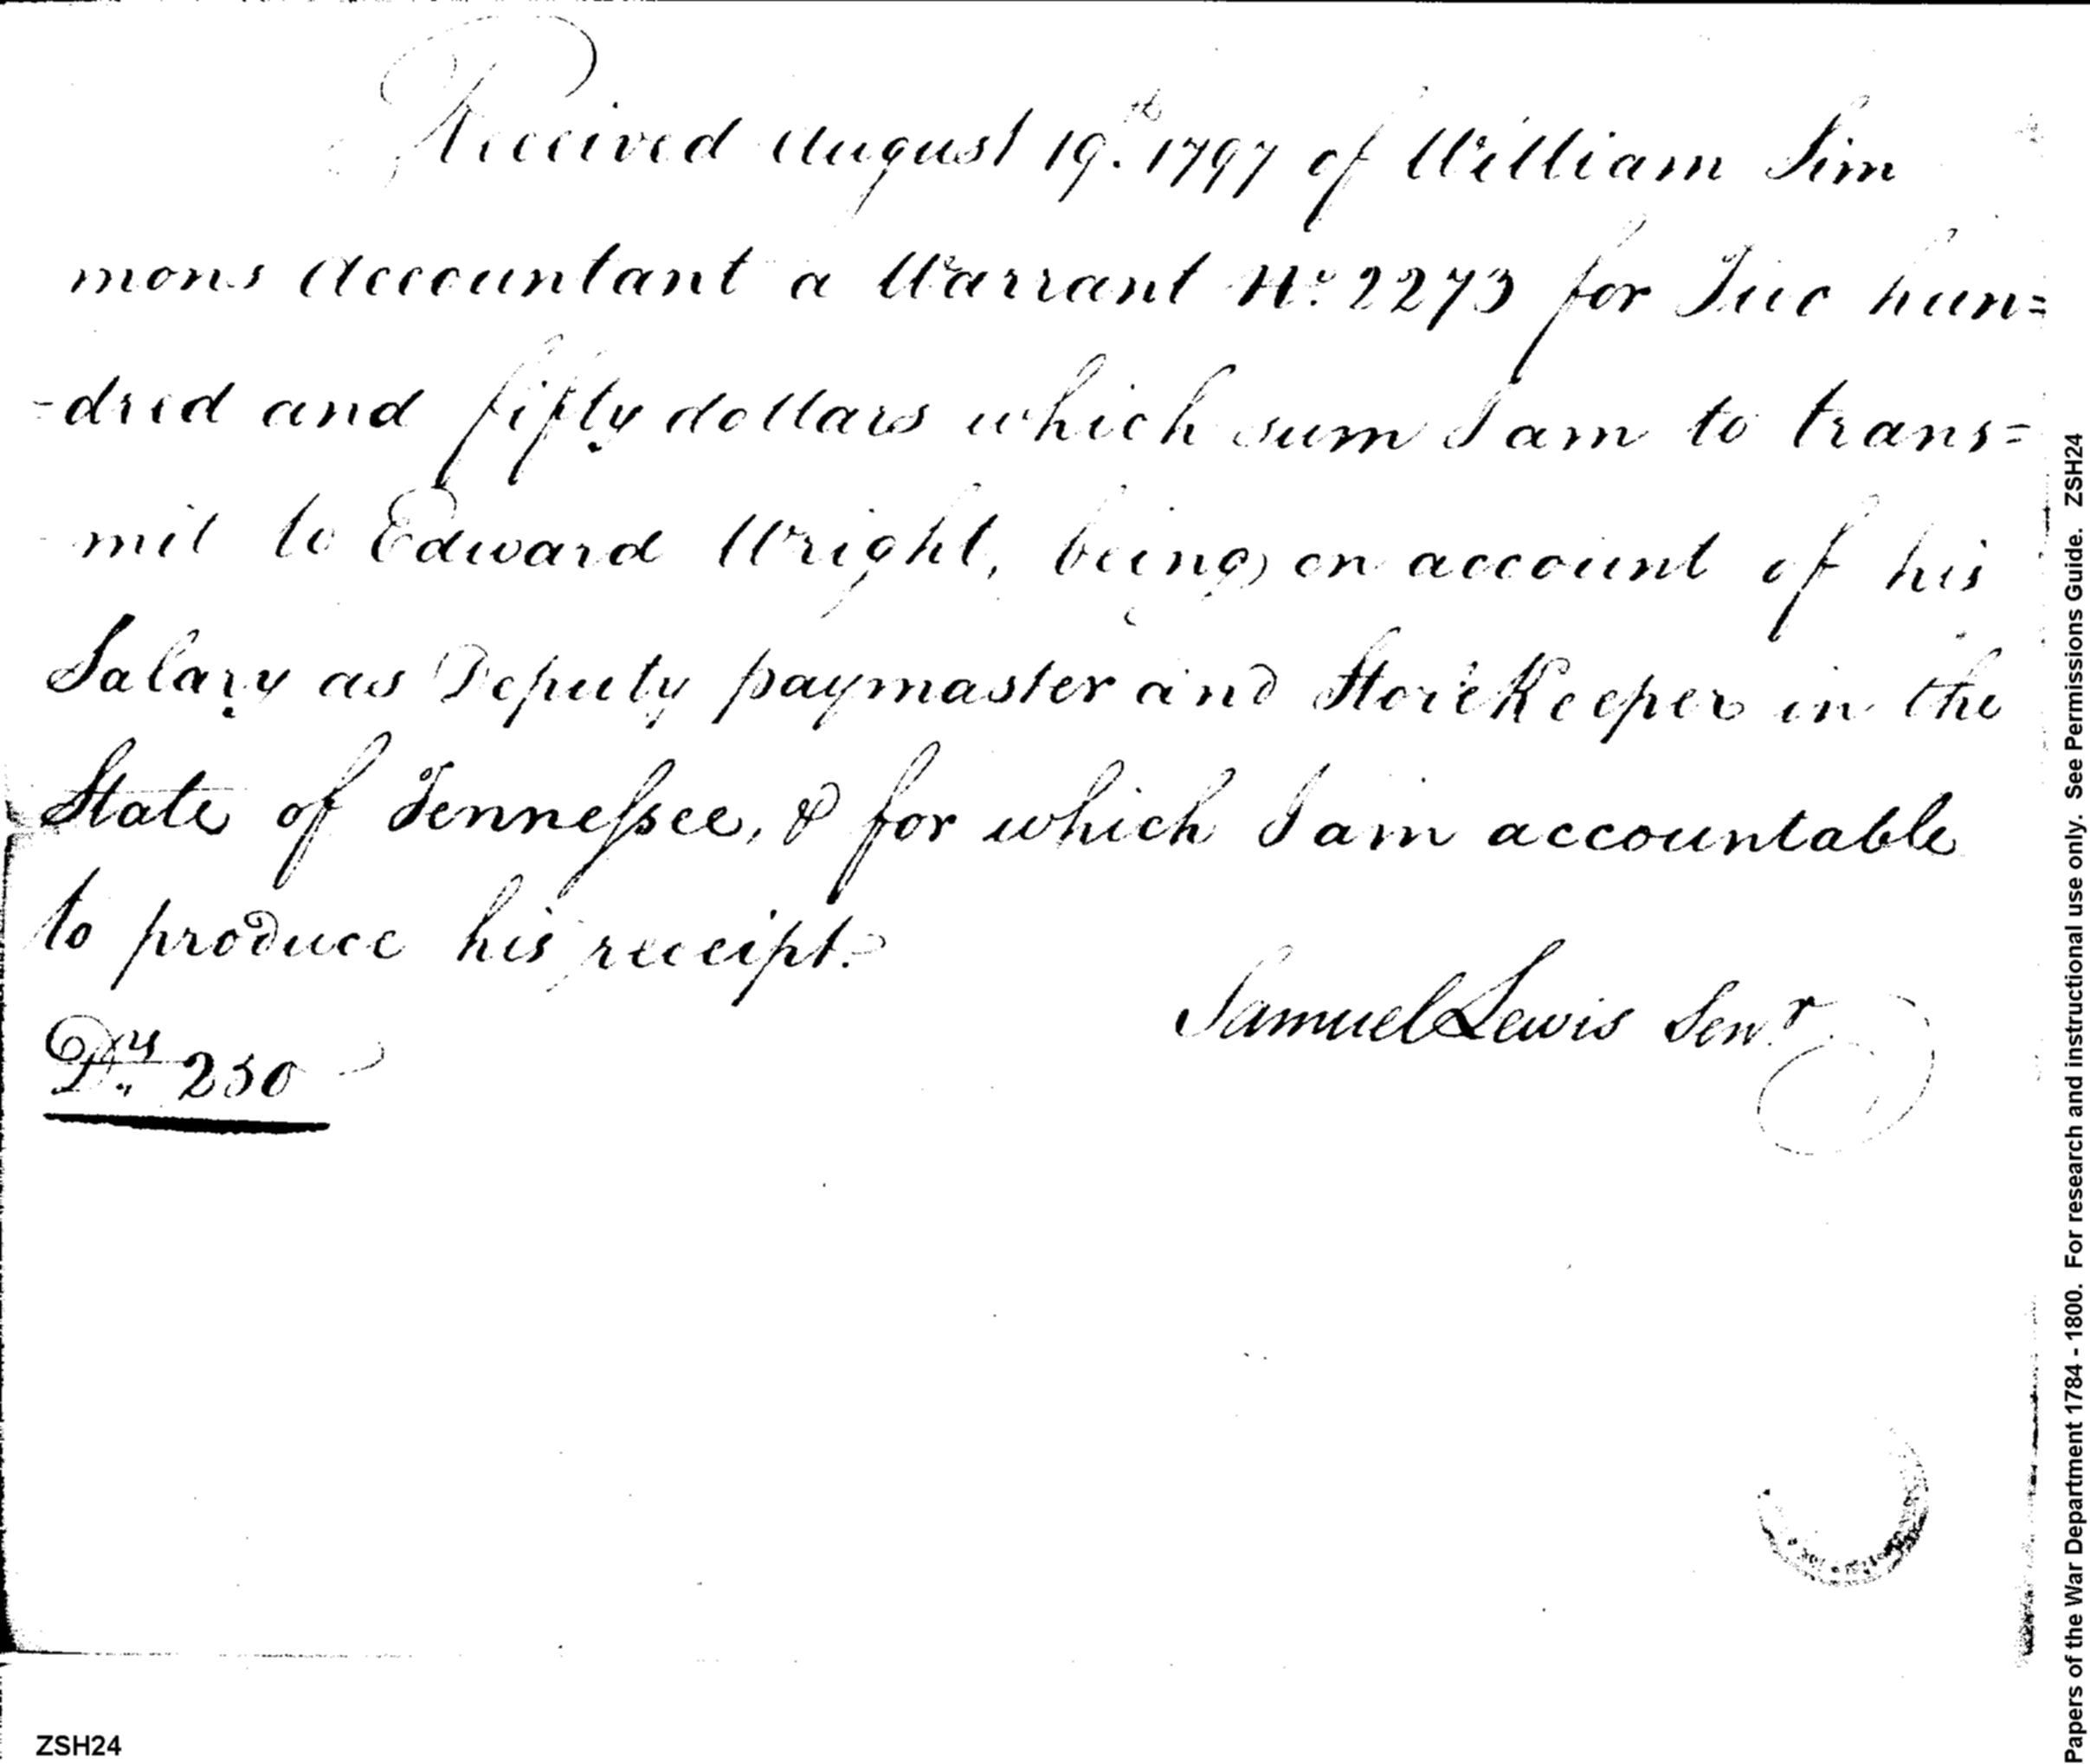 Received August 19th. 1797 of William Sim
mons Accountant a Warrant No. 2273 for Two hun=
-dred and fifty dollars which sum I am to trans=
mit to Edward Wright, being on account of his
Salary as Deputy paymaster and StoreKeeper in the
State of Tenneſsee, & for which I am accountable
to produce his receipt.
Samuel Lewis Senr.
Drs. 250
ZSH24
Papers of the War Department 1784 - 1800. For research and instructional use only. See Permissions Guide. ZSH24